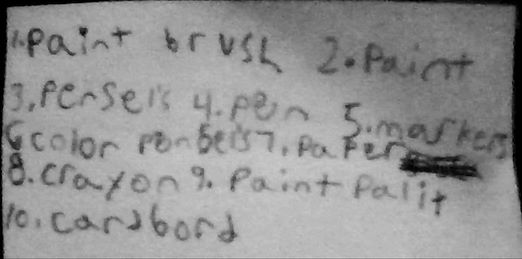 1. paint brush 2. Paint
3. Pensels 4. pen 5. markers
6 color pensels 7. paper
8. crayon 9. Paint Palit
10. cardbord